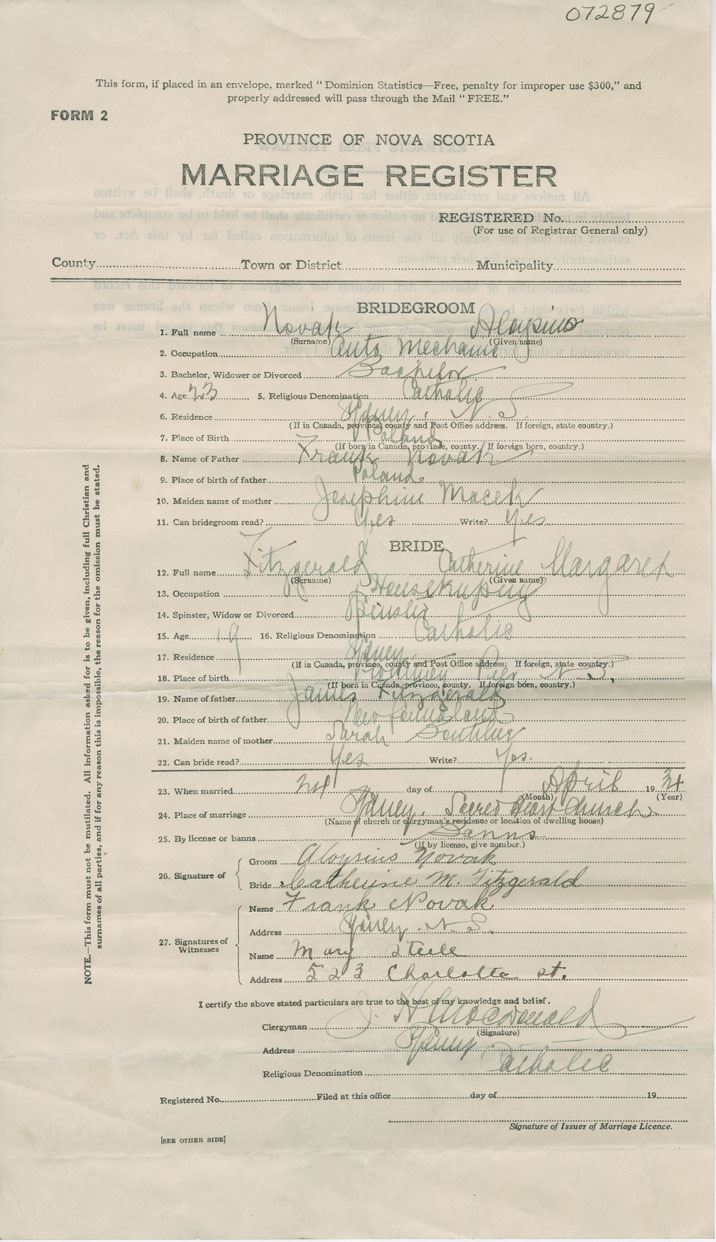 072879
This form, if placed in an envelope, marked "Dominion Statistics—Free, penalty for improper use $300," and
properly addressed will pass through the Mail "FREE."
FORM 2
PROVINCE OF NOVA SCOTIA
MARRIAGE REGISTER
REGISTERED No.
(For use of Registrar General only)
County Town or District Municipality
BRIDEGROOM
1. Full name Novak Aloysius
(Surname) (Given name)
2. Occupation Auto Mechanic
3. Bachelor, Widower or Divorced Bachelor
4. Age 23 5. Religious Denomination Catholic
6. Residence Sydney, N.S.
(If in Canada, province, county and Post Office address. If foreign, state country.)
7. Place of Birth Poland
(If born in Canada, province, county. If foreign born, country.)
8. Name of Father Frank Novak
9. Place of birth of father Poland
10. Maiden name of mother Josephine Macek
11. Can bridegroom read? Yes Write? Yes
BRIDE
12. Full name Fitzgerald Catherine Margaret
(Surname) (Given name)
13. Occupation Housekeeping
14. Spinster, Widow or Divorced Spinster
15. Age 19 16. Religious Denomination Catholic
17. Residence Sydney
(If in Canada, province, county and Post Office address. If foreign, state country.)
18. Place of birth Whitney Pier N.S.
(If born in Canada, province, county. If foreign born, country.)
19. Name of father James Fitzgerald
20. Place of birth of father Newfoundland
21. Maiden name of mother Sarah
22. Can bride read? Yes Write? Yes.
23. When married day of April 1934
(Month) (Year)
24. Place of marriage Sydney. Sacred Heart Church
(Name of church or clergyman's residence or location of dwelling house)
25. By license or banns Banns
(If by license, give number.)
26. Signature of
Groom Aloysius Novak
Bride Catherine M. Fitzgerald
27. Signatures of Witnesses
Name Frank Novak
Address Sydney N.S.
Name Mary Steele
Address 523 Charlotte st.
I certify the above stated particulars are true to the best of my knowledge and belief.
Clergyman J. H. Macdonald
(Signature)
Address Sydney
Religious Denomination Catholic
Registered No. Filed at this office day of 19
Signature of Issuer of Marriage Licence.
[SEE OTHER SIDE]
NOTE.—This form must not be mutilated. All information asked for is to be given, including full Christian and
surnames of all parties, and if for any reason this is impossible, the reason for the omission must be stated.